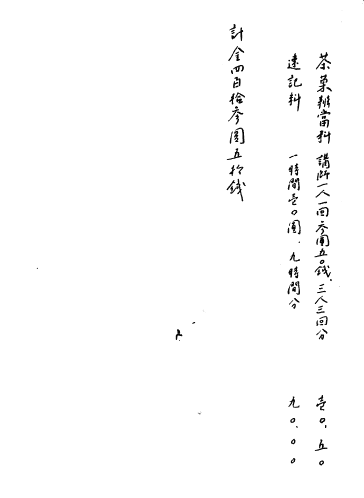 茶菓辨當料 講師一人一回参圓五〇錢、三人三回分 壱〇、五〇
速記料 一時間壱〇圓、九時間分 九〇、〇〇
計金四百拾参圓五拾錢